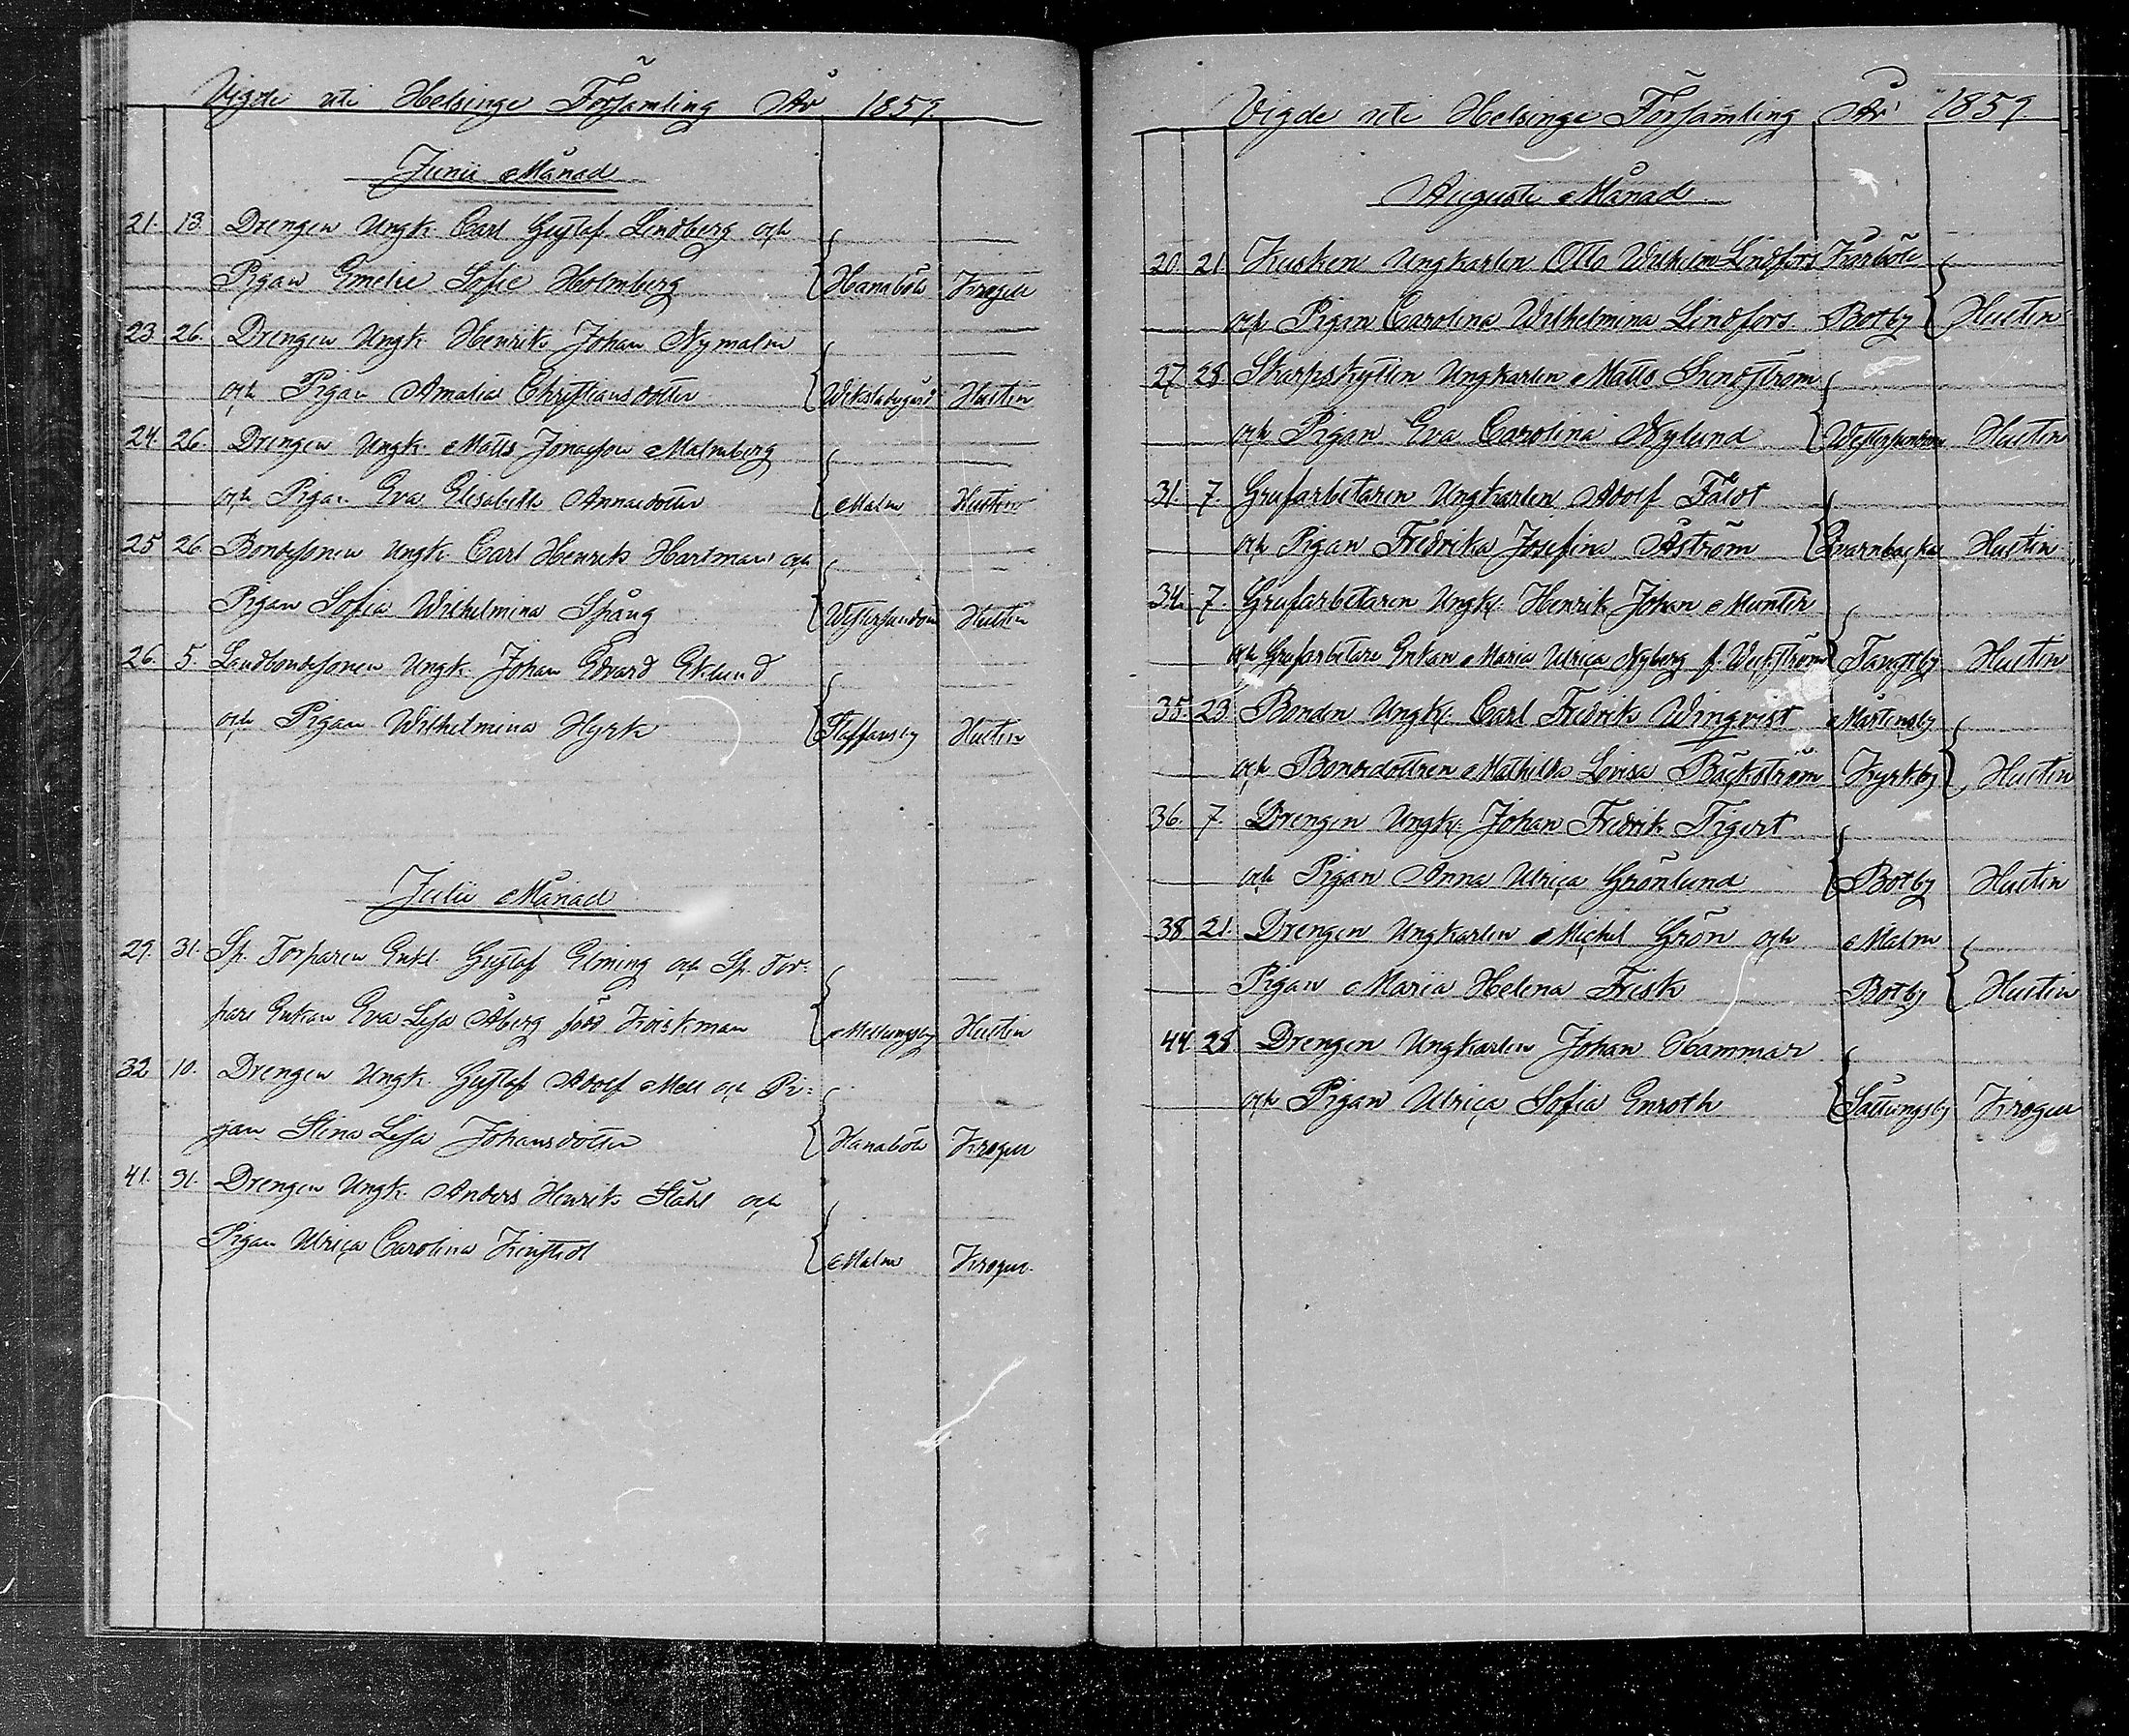 Vigde uti Helsinge Församling År 1859.
Junii Månad
21. 13. Drengen Ungk. Carl Gustaf Lindberg och
Pigan Emelie Sofie Holmberg Hanaböle Krogell
23. 26. Drengen Ungk. Henrik Johan Nymalm
och Pigan Amalia Christiansdotter Hustin
24. 26. Drengen Ungk. Matts Jonasson Malmberg
och Pigan Eva Elisabeth Annaedotter Malm Hustin
25 26 Bondesonen Ungk. Carl Henrik Hartman och
Pigan Sofia Wilhelmina Spång Westersundom Hustin
26. 5. Landbondesonen Ungk. Johan Edvard Eklund
och Pigan Wilhelmina Hyrk Staffansby Hustin
Julii Månad
29. 31. Sp. Torparen Enkl. Gustaf Elming och Sp. Tor-
pare Enkan Eva Lisa Åberg född Koiskman Mellungsby Hustin
32 10. Drengen Ungk. Gustaf Adolf Mell och Pi-
gan Stina Lisa Johansdotter Hanaböle Krogell
41. 31. Drengen Ungk. Anders Henrik Ståhl och
Pigan Ulrica Carolina Malm Krogell
Vigde uti Helsinge Församling År 1859.
Augusti Månad
20. 21 Kusken Ungkarlen Otto Wilhelm Lindfors Kårböle
och Pigan Carolina Wilhelmina Lindfors Botby Hustin
27. 28 Skarpskytten Ungkarlen Matts Sundström
och Pigan Eva Carolina Nylund Westersundom Hustin
31. 7. Grufarbetaren Ungkarlen Adolf Fäldt
och Pigan Fredrika Josefina Åström Qvarnbacka Hustin
34. 7. Grufarbetaren Ungk. Henrik Johan Munter
och Grufarbetare Enkan Maria Ulrica Nyberg f. Weckström Hustin
35. 23 Bonden Ungk. Carl Fredrik Winqvist Mårtensby
och Bondedottren Mathilda Lovisa Bäckström Kyrkby Hustin
36. 7. Drengen Ungk. Johan Fredrik Tigert
och Pigan Anna Ulrica Grönlund Botby Hustin
38. 21. Drengen Ungkarlen Michel Grön och Malm
Pigan Maria Helena Frisk Botby Hustin
44. 28 Drengen Ungkarlen Johan Hammar
och Pigan Ulrica Sofia Enroth Krogell